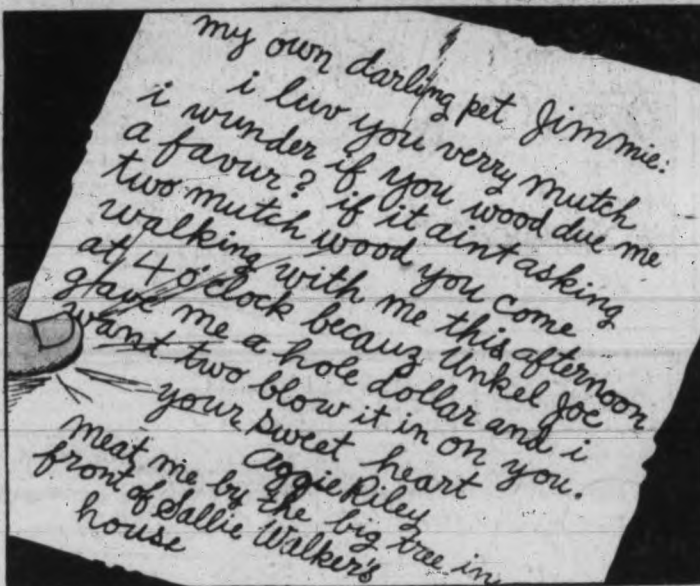 my own darling pet Jimmie:
i luv you verry mutch
i wunder if you wood due me
a favur? if it aint asking
two mutch wood you come
walking with me this afternoon
at 4 o'clock becauz Unkel Joe
gave me a hole dollar and i
want two blow it in on you.
your sweet heart
Aggie Riley
meat me by the big tree in
front of Sallie Walker's
house